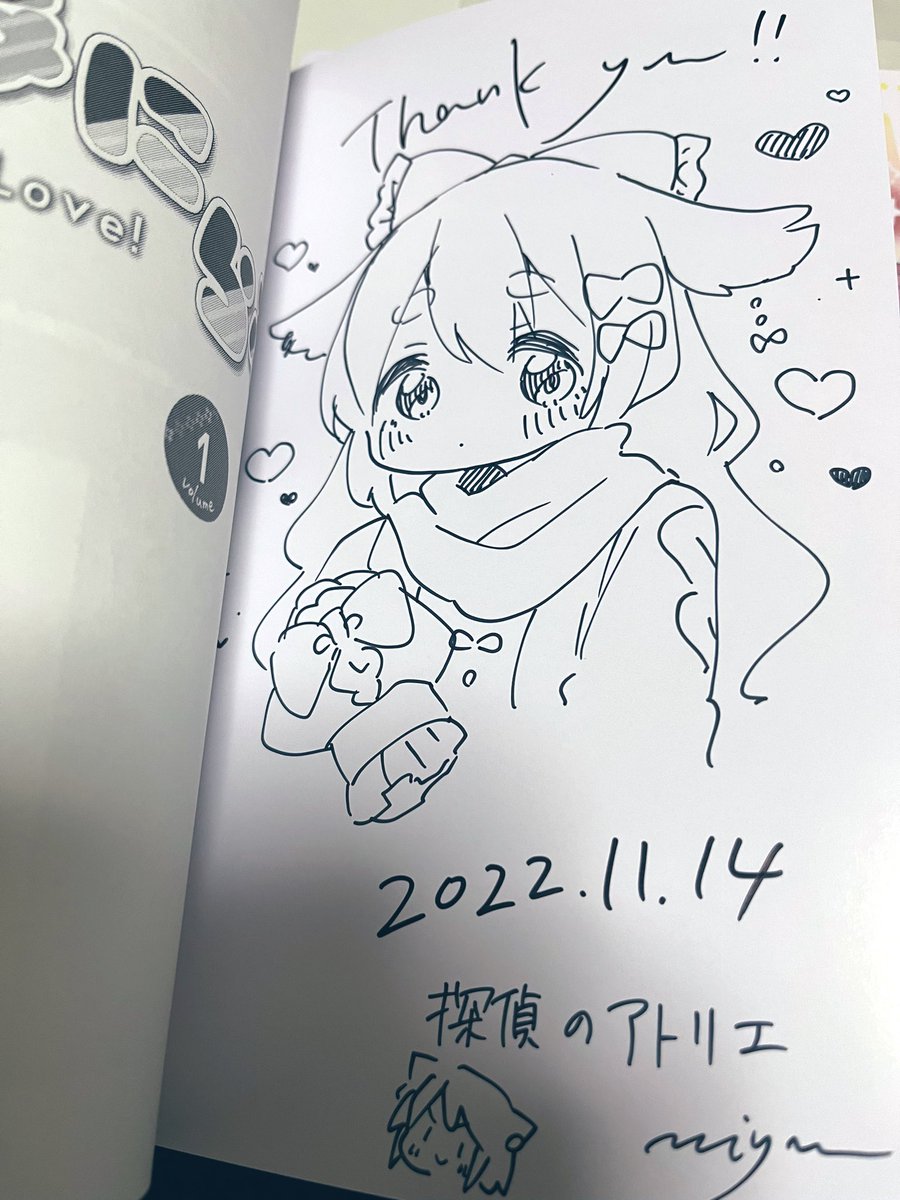 Thank you!!
Love!
1
volume
2022.11.14
探偵のアトリエ
miyu